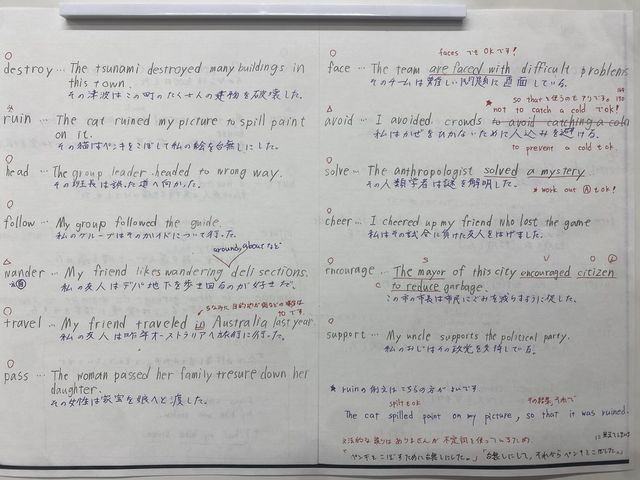 destroy … The tsunami destroyed many buildings in
this town.
その津波はこの町のたくさんの建物を破壊した。
ruin … The cat ruined my picture to spill paint
on it.
その猫はペンキをこぼして私の絵を台無しにした。
head … The group leader headed to wrong way.
その班長は誤った道へ向かった。
follow … My group followed the guide.
私のグループはそのガイドについて行った。
around, aboutなど
wander … My friend likes wandering deli sections.
私の友人はデパ地下を歩き回るのが好きだ。
travel … My friend traveled in Australia last year.
toです。
私の友人は昨年オーストラリアへ旅行に行った。
pass … The woman passed her family tresure down her
daughter.
その女性は家宝を娘へと渡した。
faces でもOKです!
face … The team are faced with difficult problems
そのチームは難しい問題に直面している。
so thatを使うのもアリです。
not to catch a cold でもok!
avoid … I avoided crowds to avoid catching a cold
私はかぜをひかないために人込みを避ける。
to prevent a cold でもok.
solve … The anthropologist solved a mystery.
その人類学者は謎を解明した。
work out でもok!
cheer … I cheered up my friend who lost the game
私はその試合に負けた友人をはげました。
S V O
encourage … The mayor of this city encouraged citizen
to reduce garbage.
C
この市の市長は市民にごみを減らすように促した。
support … My uncle supports the political party.
私のおじはその政党を支持している。
ruinの例文はこちらの方がよいです
spiltでもok その結果、それで
The cat spilled paint on my picture, so that it was ruined.
文法的な誤りはありませんが 不定詞を使っているため
「ペンキをこぼすために台無しにした。」「台無しにして、それからペンキをこぼした。」